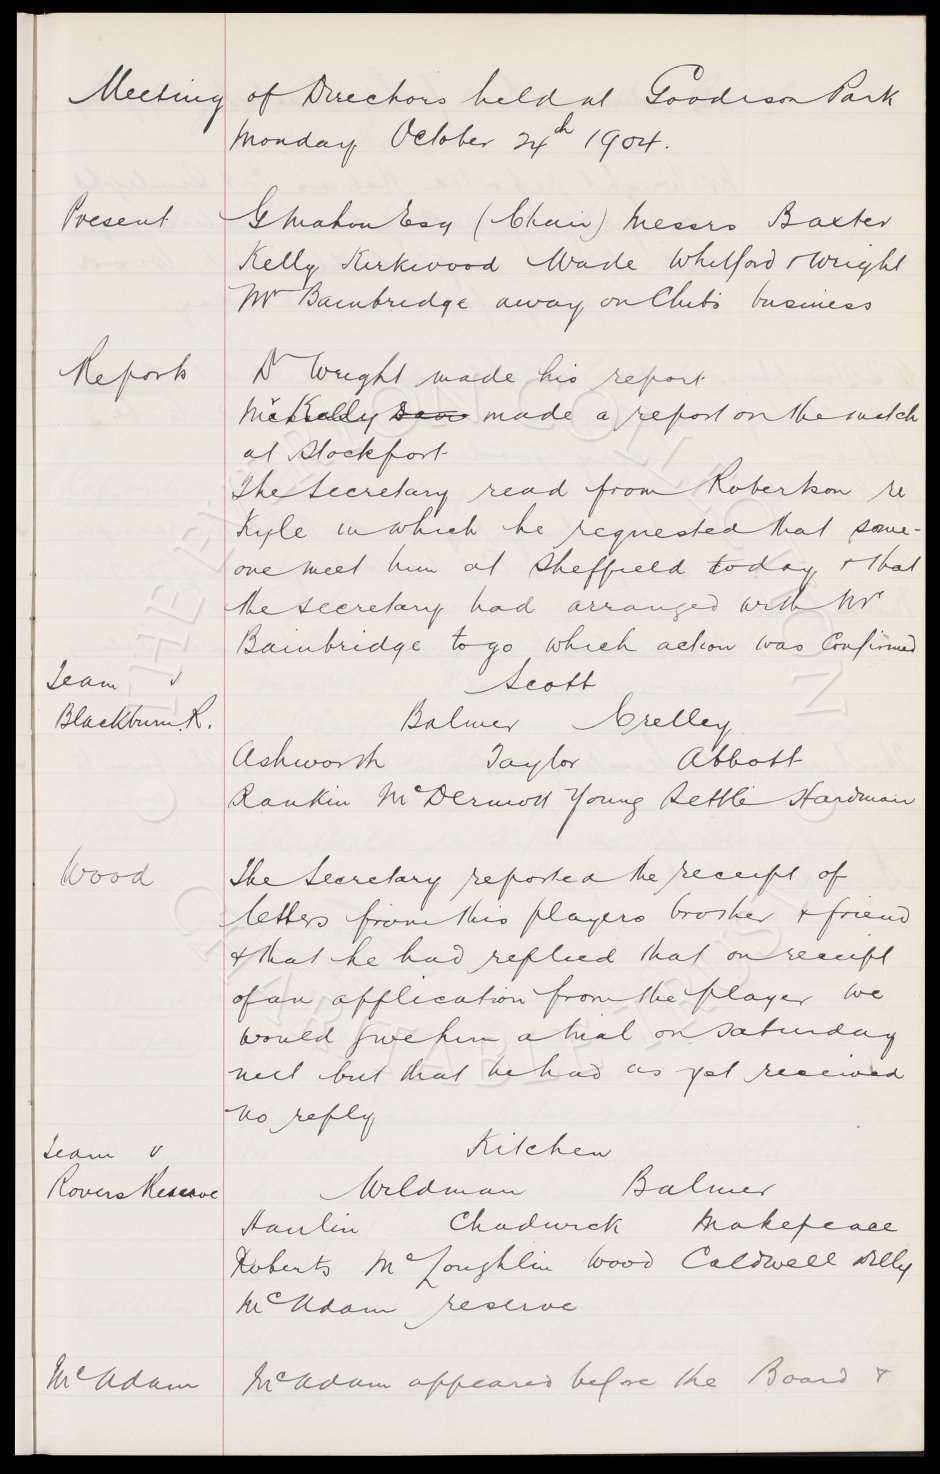 Meeting of Directors held at Goodison Park
Monday October 24th 1904.
Present G Mahon Esq (Chair) Messrs Baxter
Kelly Kirkwood Wade Whitford & Wright
Mr Bainbridge away on Clubs business
Reports Dr Wright made his report
Mr Kelly made a report on the match
at Stockport
The Secretary read from Robertson re
Kyle in which he requested that some-
one meet him at Sheffield today & that
the secretary had arranged with Mr
Bainbridge to go which action was confirmed
Team v Scott
Blackburn R. Balmer Crelley
Ashworth Taylor Abbott
Rankin McDermott Young Settle Hardman
Wood The Secretary reported the receipt of
letters from this players brother & friend
& that he had replied that on receipt
of an application from the player we
would give him a trial on Saturday
next but that he had as yet received
no reply
Team v Kitchen
Rovers Reserve Wildman Balmer
Hanlin Chadwick Makepeace
Roberts McLoughlin Wood Caldwell Dilly
McAdam reserve
McAdam McAdam appeared before the Board &
THE EVERTON COLLECTION
CHARITABLE TRUST